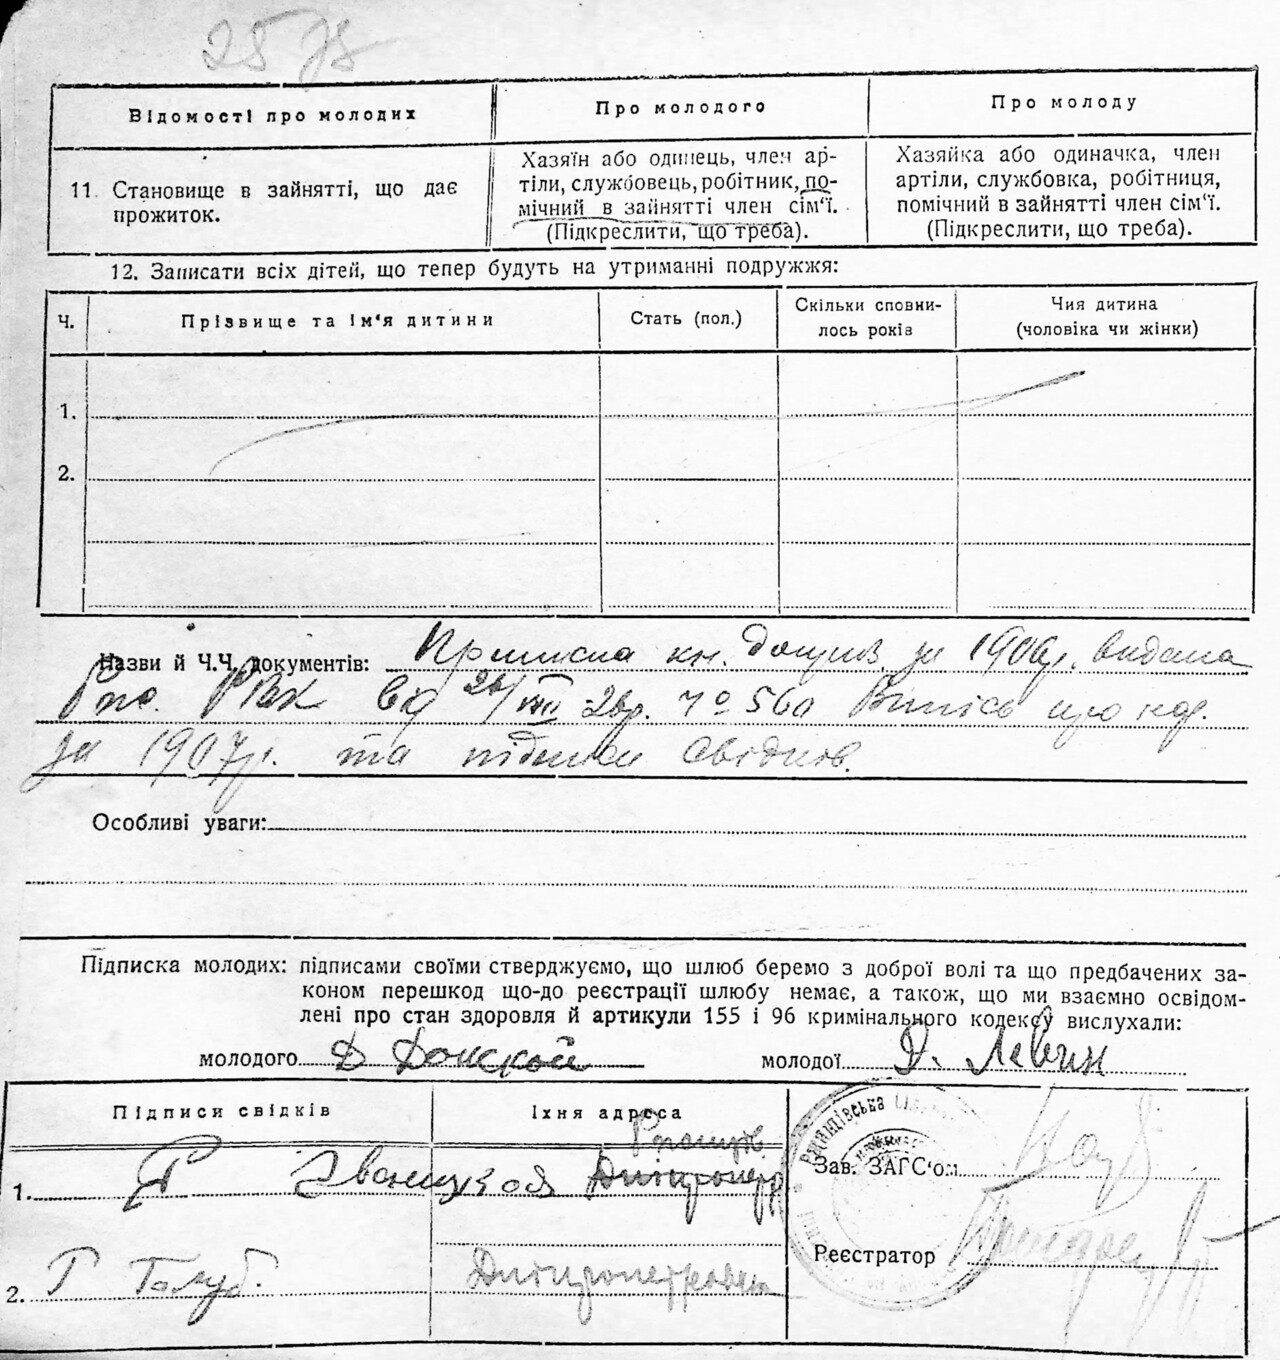 25
Відомості про молодих
Про молодого
Про молоду
11. Становище в зайнятті, що дає
прожиток.
Хазяїн або одинець, член ар-
тіли, службовець, робітник, по-
мічний в зайнятті член сім'ї.
(Підкреслити, що треба).
Хазяйка або одиначка, член
артіли, службовка, робітниця,
помічний в зайнятті член сім'ї.
(Підкреслити, що треба).
12. Записати всіх дітей, що тепер будуть на утриманні подружжя:
Ч.
Прізвище та ім'я дитини
Стать (пол.)
Скільки сповни-
лось років
Чия дитина
(чоловіка чи жінки)
1.
2.
Назви й Ч.Ч. документів: Приписна кн. за 1906р. видана
РВК від 26/VIII 28р. № 560 про нар.
за 1907р. та підписи свідків.
Особливі уваги:
Підписка молодих: підписами своїми стверджуємо, що шлюб беремо з доброї волі та що предбачених за-
коном перешкод що-до реєстрації шлюбу немає, а також, що ми взаємно освідом-
лені про стан здоровля й артикули 155 і 96 кримінального кодексу вислухали:
молодого Д Донской молодої Д. Левин
Підписи свідків
Їхня адреса
1.
2. Г Голуб.
Дніпропетровськ
Зав. ЗАГС'ом
Реєстратор